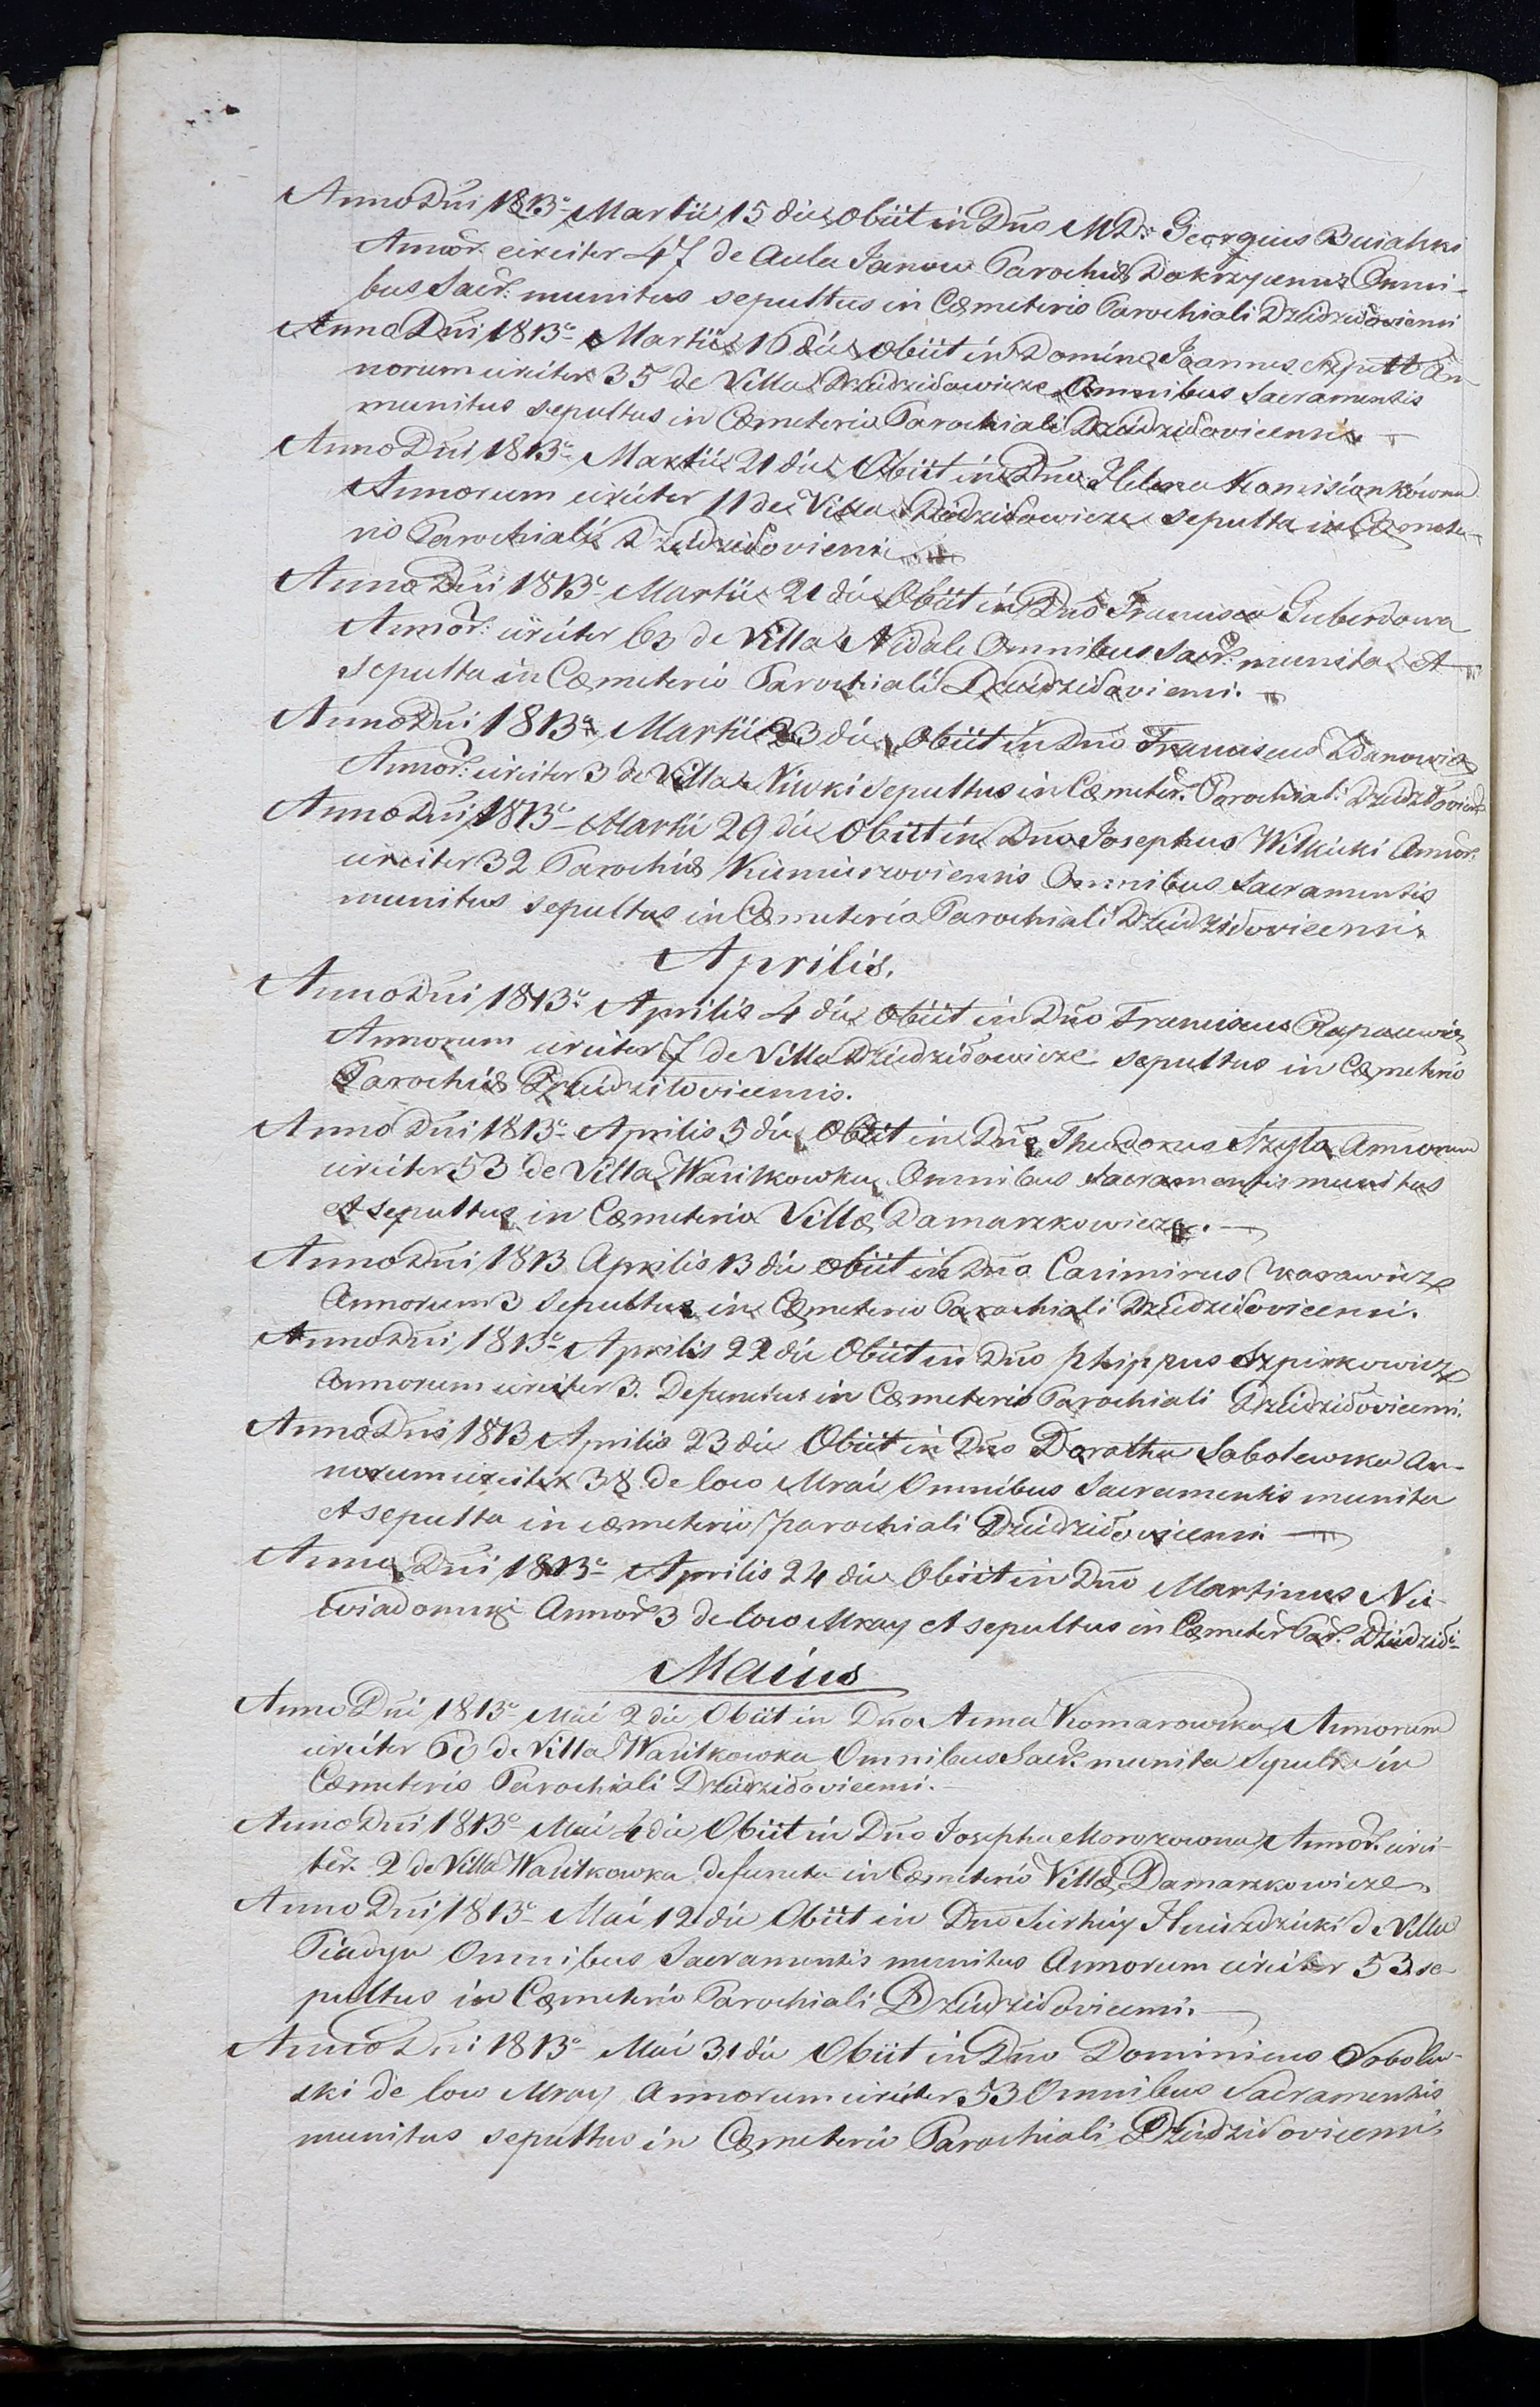 Anno Dni 1813º Martii 15 die Obiit in Dno MD: Georgius
Annor. circiter 47 de Aula Janow Parochiæ Dokrzycensis Omni-
bus Sacr: munitus sepultus in Cæmeterio Parochiali Dziedziłoviensi
Anno Dni 1813º Martii 16 die obiit in Domino Joannes Szpett An-
norum circiter 35 de Villa Dziedziłowicze Omnibus Sacramentis
munitus sepultus in Cæmeterio Parochiali Dziedziłovicensi
Anno Dni 1813º Martii 21 die Obiit in Dno Helena
Annorum circiter 11 de Villa Dziedziłowicze sepulta in Cæmete-
rio Parochiali Dziedziłoviensi
Anno Dni 1813º Martii 21 die Obiit in Dno Francisca Guberdowa
Annor: circiter 63 de Villa Nidale Omnibus Sacr: munita Et
sepulta in Cæmeterio Parochiali Dziedziłoviensi.
Anno Dni 1813º Martii 23 die Obiit in Dno Franciscus Zdanowicz
Annor: circiter 3 de Villa Niwki sepultus in Cæmeter. Parochiali
Anno Dni 1813º Martii 29 die Obiit in Dno Josephus Wilkicki Annor.
circiter 32 Parochiæ Omnibus Sacramentis
munitus sepultus in Cæmeterio Parochiali Dziedziłovicensi
Aprilis.
Anno Dni 1813º Aprilis 4 die Obiit in Dno Franciscus Rapacewicz
Annorum circiter 7 de Villa Dziedziłowicze sepultus in Cæmeterio
Parochiæ Dziedziłovicensis.
Anno Dni 1813º Aprilis 5 die Obiit in Dno Theodorus Szyła Annorum
circiter 53 de Villa Wasilkowka Omnibus Sacramentis munitus
Et sepultus in Cæmeterio Villæ Damaszkowicze.
Anno Dni 1813 Aprilis 13 die obiit in Dno Casimirus
Annorum 3 Sepultus in Cæmeterio Parochiali Dziedziłovicensi.
Anno Dni 1813º Aprilis 22 die Obiit in Dno Phippus Szpirkowicz
Annorum circiter 3. Defunctus in Cæmeterio Parochiali Dziedziłovicensi.
Anno Dni 1813 Aprilis 23 die Obiit in Dno Dorothea Sobolewska An-
norum circiter 38 de loco Mrai Omnibus Sacramentis munita
Et sepulta in cæmeterio parochiali Dziedziłovicensi
Anno Dni 1813º Aprilis 24 die Obiit in Dno Martinus Nie
wiadomski Annor 3 de loco Mray Et sepultus in Cæmeter Par. Dziedziłi
Maius
Anno Dni 1813º Maii 2 die Obiit in Dno Anna Komarowska Annorum
circiter 60 de Villa Wasilkowka Omnibus Sacr. munita Sepulta in
Cæmeterio Parochiali Dziedziłovicensi.
Anno Dni 1813º Maii 4 die Obiit in Dno Josepha Morozowna Annor. circi-
ter. 2 de Villa Wasilkowka defuncta in Cæmeterio Villæ Damaszkowicze
Anno Dni 1813º Maii 12 die Obiit in Dno de Villa
Omnibus Sacramentis munitus Annorum circiter 53 se-
pultus in Cæmeterio Parochiali Dziedziłovicensi.
Anno Dni 1813º Maii 31 die Obiit in Dno Dominicus Sobolew-
ski de loco Mray Annorum circiter 53 Omnibus Sacramentis
munitus sepultus in Cæmeterio Parochiali Dziedziłovicensi